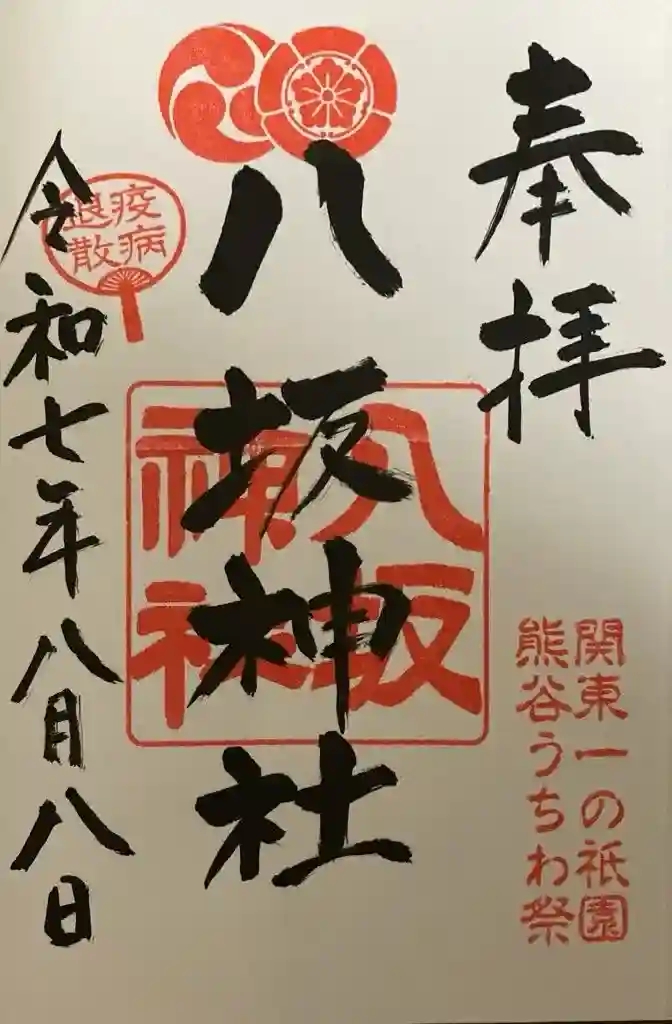 奉拝
関東一の祇園
熊谷うちわ祭
八坂神社
八坂
神社
疫病
退散
令和七年八月八日